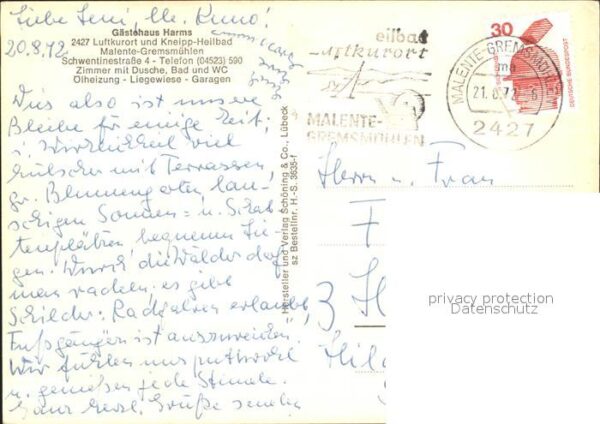 Liebe Leni, lb. Kuno!
20.8.72
Gästehaus Harms
2427 Luftkurort und Kneipp-Heilbad
Malente-Gremsmühlen
Schwentinestraße 4 - Telefon (04523) 590
Zimmer mit Dusche, Bad und WC
Ölheizung - Liegewiese - Garagen
Dies also ist unsere
Bleibe für einige Zeit,
in Wirklichkeit viel
hübscher mit Terrassen,
gr. Blumengarten, lau-
schigen Sonnen- u. Schat-
tenplätzen bequemen Lie-
gen. Durch die Wälder darf
man radeln. es gibt
Schilder: Radfahren erlaubt,
Fußgängern ist auszuweichen.
Wir fühlen uns putzwohl
u. genießen jede Stunde.
Ganz herzl. Grüße senden
Hersteller und Verlag Schöning & Co., Lübeck
sz Bestellnr. H.-S. 3635-f
eilbad
Luftkurort
MALENTE-
GREMSMÜHLEN
MALENTE-GREMSMÜHLEN
21.8.72
2427
30
DEUTSCHE BUNDESPOST
Herrn u. Frau
privacy protection
Datenschutz